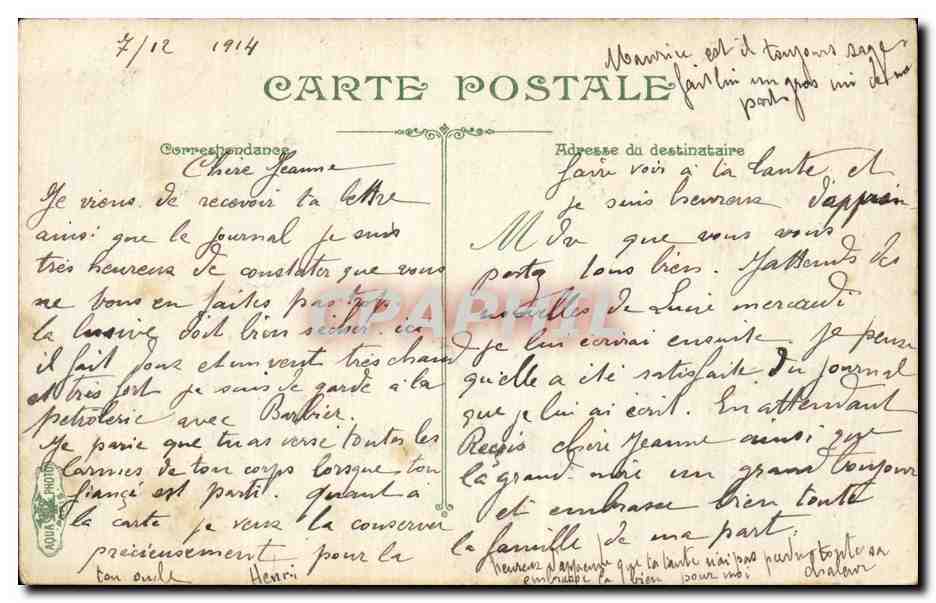 7/12 1914
Maurice est il toujours sage
fait lui un gros mi de ma
part
CARTE POSTALE
Correspondance
Adresse du destinataire
Chère Jeanne
Je viens de recevoir ta lettre
ainsi que le journal je suis
très heureux de constater que vous
ne vous en faites pas trop
la lusive doit bien sécher ici
il fait doux et un vent très chaud
et très fort je suis de garde à la
petrolerie avec Barbier.
Je parie que tu as versé toutes les
larmes de ton corps lorsque ton
fiançé est parti. quant à
la carte je veux la conserver
précieusement pour la
faire voir à ta tante et
je suis heureux d'appren
M du que vous vous
portez tous bien. J'attends des
nouvelles de Lucie mercredi
je lui écrirai ensuite je pense
qu'elle a été satisfaite du journal
que je lui ai écrit. En attendant
Reçois chère Jeanne ainsi que
la grand mère un grand bonjour
et embrasse bien toute
la famille de ma part.
ton oncle Henri
heureux d'apprendre que ta tante n'ai pas perdu toute sa
embrasse la bien pour moi chaleur
AQUA PHOTO
CPAPHIL